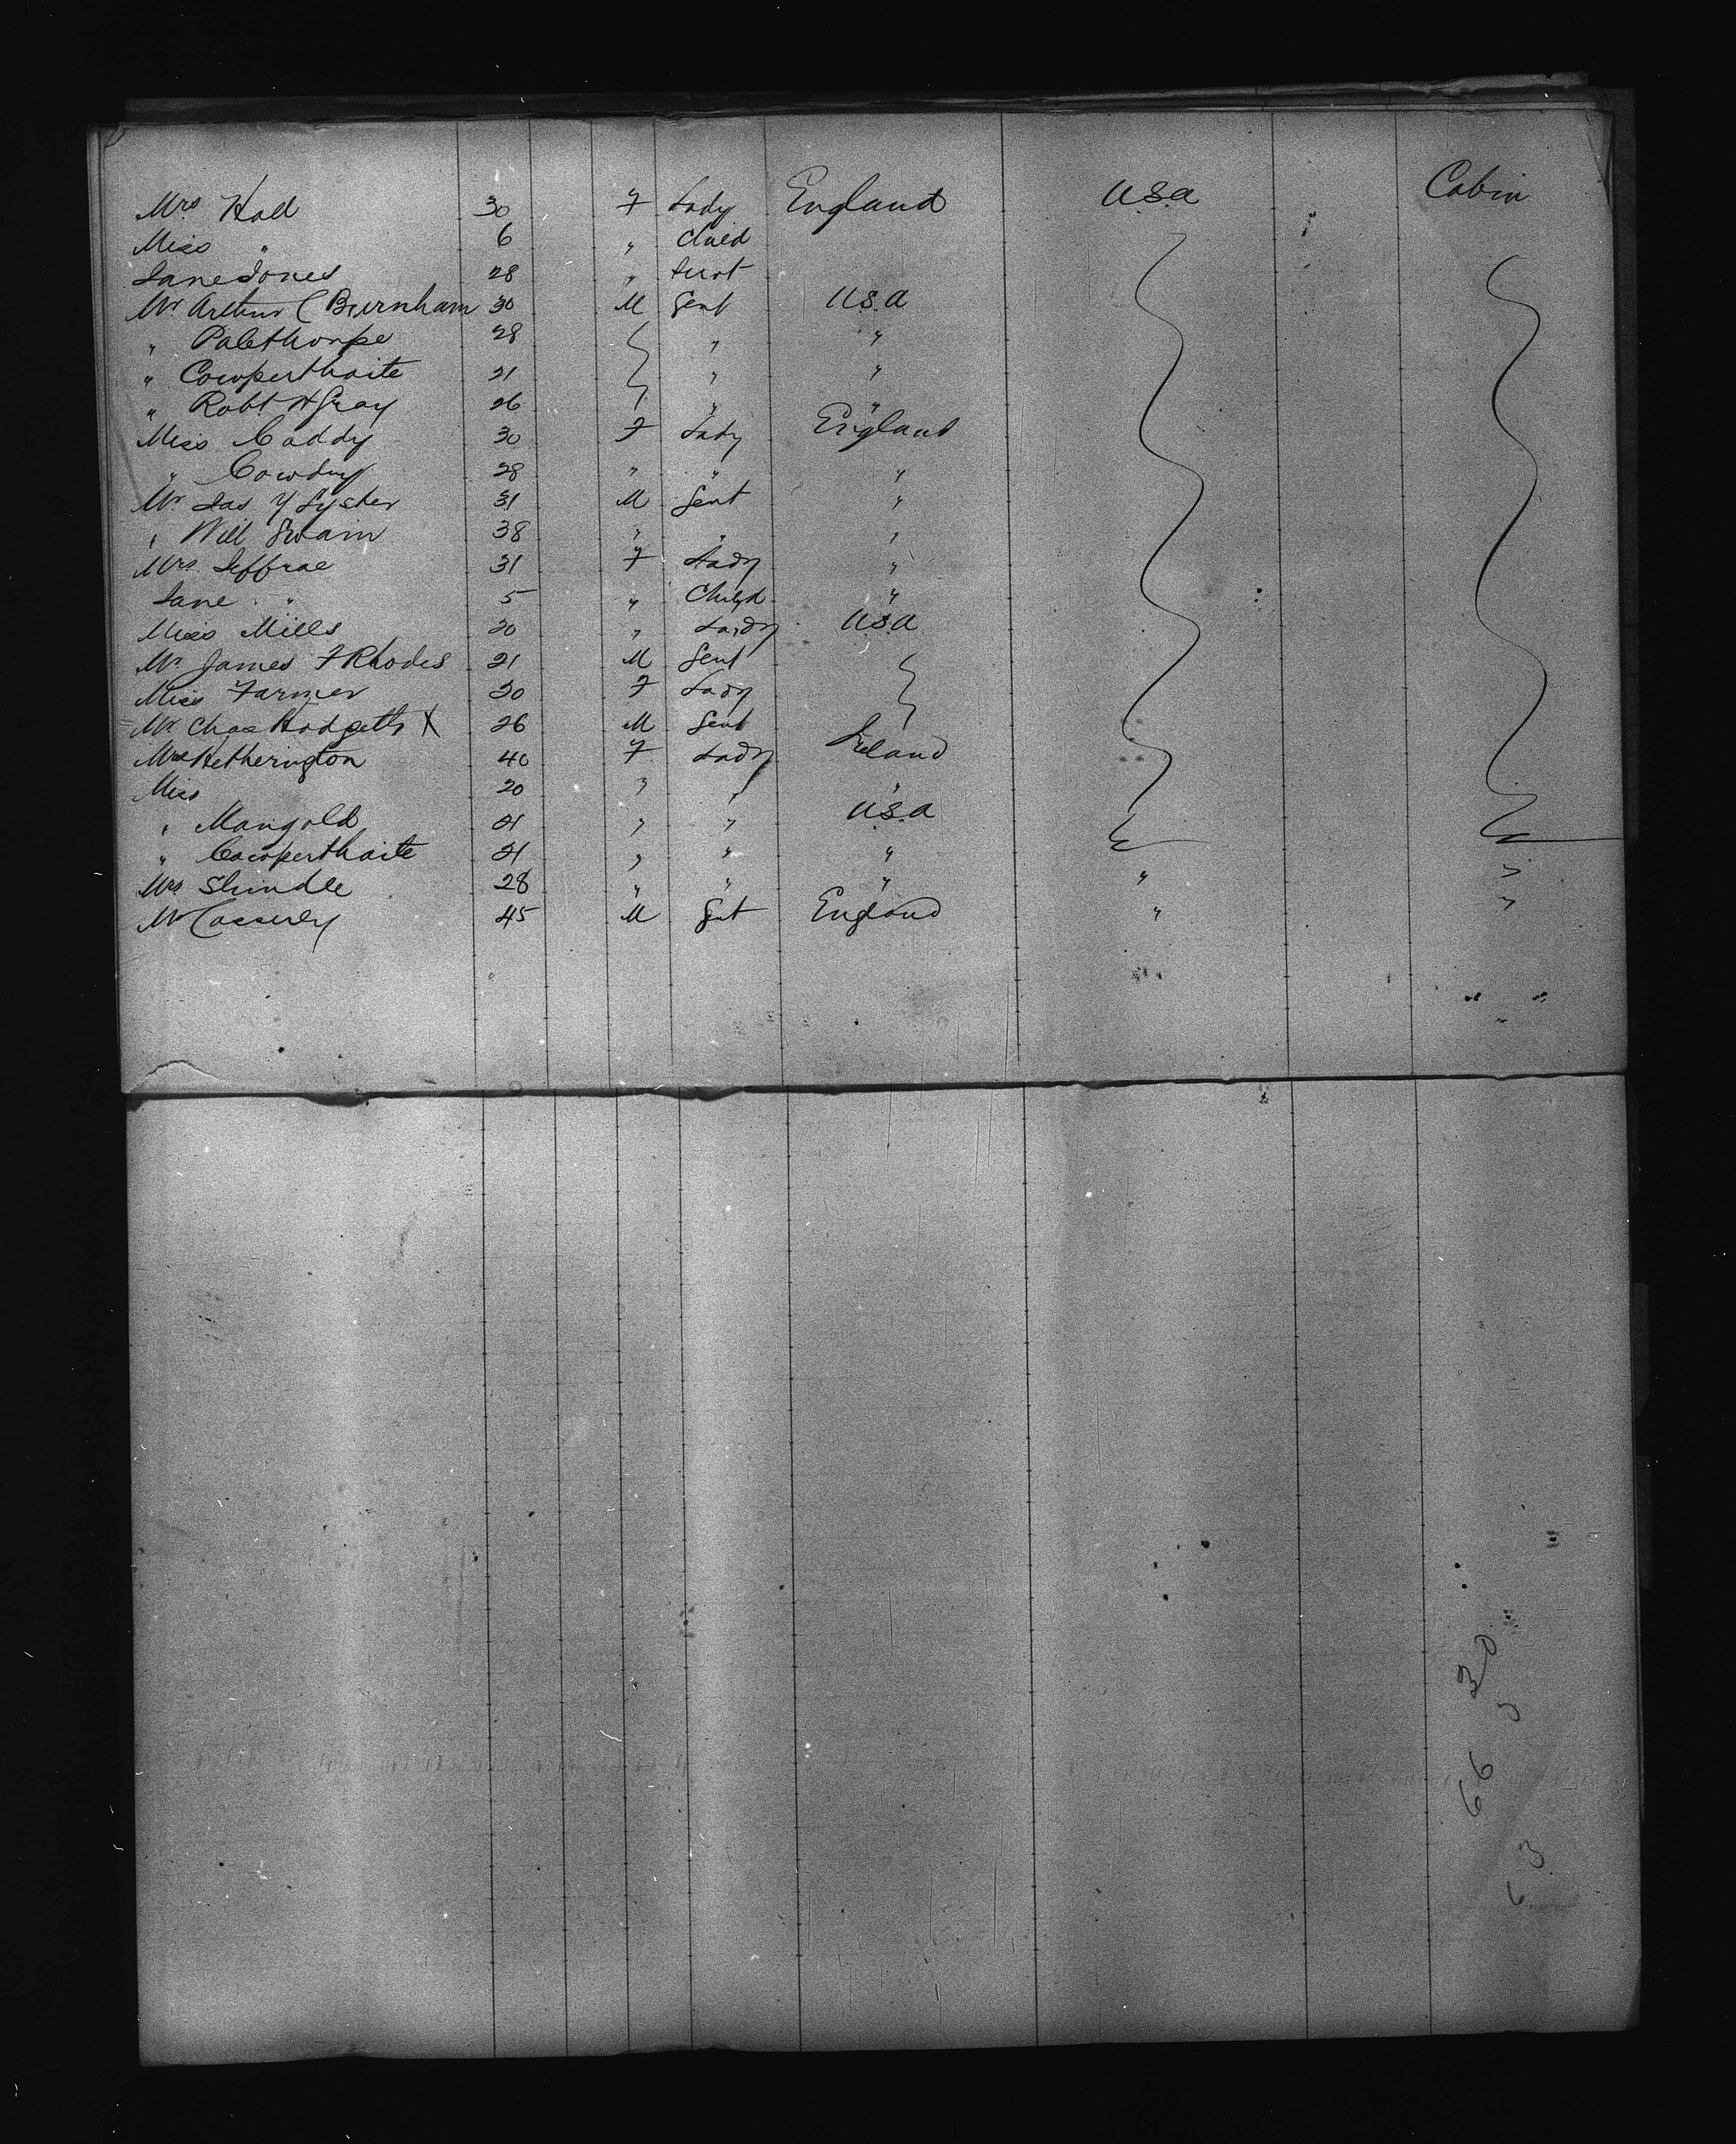 Mrs Hall 30 F Lady England USA Cabin
Miss " 6 " Child
Jane Jones 28 " Servt
Mr Arthur C Burnham 30 M Gent USA
" Palethorpe 28 " "
" Cowperthaite 21 " "
" Robt H Gray 26 " "
Miss Caddy 30 F Lady England
" Cowdry 28 " " "
Mr Jas Y Lyster 31 M Gent "
" Will Swain 38 " " "
Mrs Jeffrae 31 F Lady "
Jane " 5 " Child "
Miss Mills 20 " Lady USA
Mr James F Rhodes 21 M Gent
Miss Farmer 20 F Lady
Mr Chas Hodgetts X 26 M Gent
Mrs Hetherington 40 F Lady Ireland
Miss 20 " " "
" Mangold 21 " " USA
" Cowperthaite 21 " " "
Mrs Shindle 28 " " " " "
Mr Casserly 45 M Gent England " "
30
66